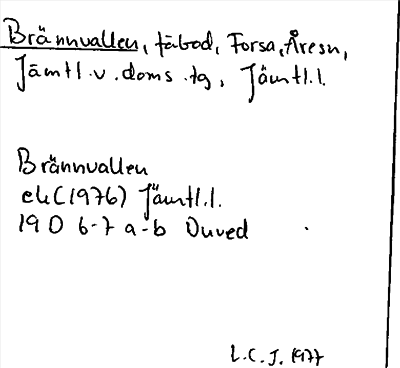 Brännvallen, fäbod, Forsa, Åresn,
Jämtl.v.doms.tg, Jämtl.l.
Brännvallen
ek (1976) Jämtl.l.
19 D 6-7 a-b Duved
L.C.J. 1977